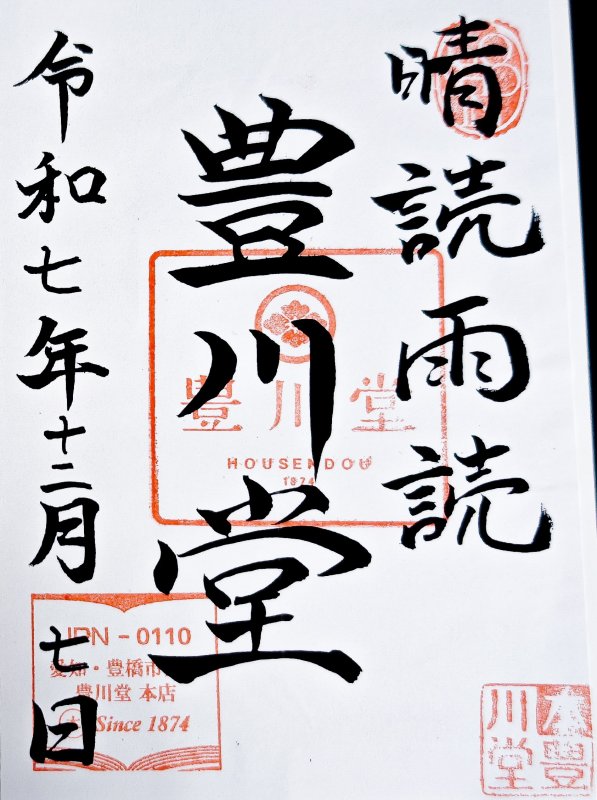 晴読雨読
豊川堂
令和七年十二月七日
豊川堂
HOUSENDOU
1874
JPN-0110
愛知・豊橋市
豊川堂 本店
Since 1874
本豊
川堂